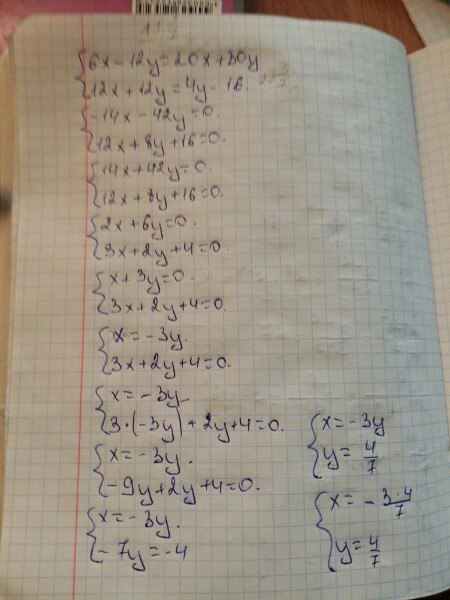 6x-12y=20x+30y
12x+12y=4y-16.
-14x-42y=0.
12x+8y+16=0.
14x+42y=0.
12x+8y+16=0.
2x+6y=0.
3x+2y+4=0.
x+3y=0.
3x+2y+4=0.
x=-3y.
3x+2y+4=0.
x=-3y
3·(-3y)+2y+4=0.
x=-3y.
-9y+2y+4=0.
x=-3y.
-7y=-4
x=-3y
y=4/7
x=-3·4/7
y=4/7